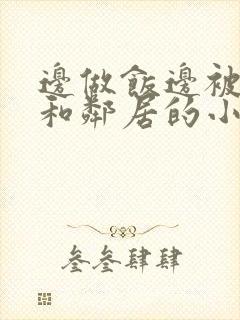 邊做飯邊被
和鄰居的小
叄叄肆肆